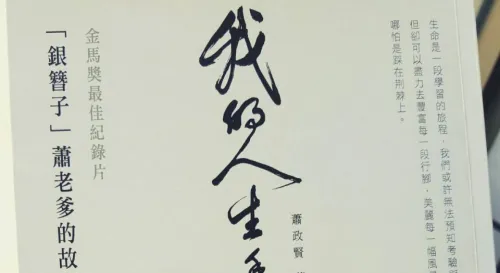 生命是一段學習的旅程，我們或許無法預知考驗
但卻可以盡力去豐富每一段行腳，美麗每一幅風
哪怕是踩在荊棘上。
蕭政賢
我的人生
金馬獎最佳紀錄片
「銀簪子」蕭老爹的故